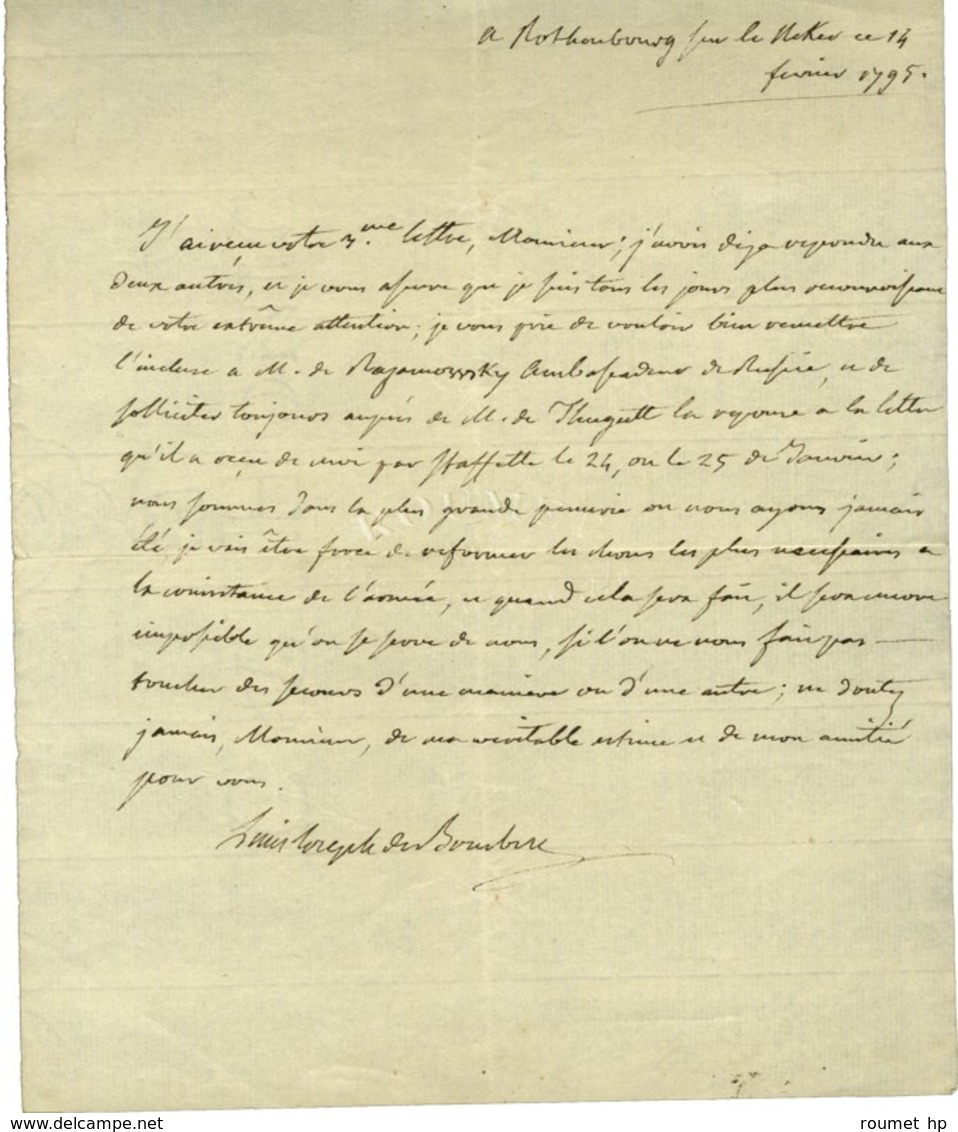 a Rothenbourg sur le Neker ce 14
fevrier 1795.
J'ai reçu votre 3.me lettre, Monsieur; j'avois deja repondu aux
deux autres, et je vous assure que je suis tous les jours plus reconnoissant
de votre extrême attention; je vous prie de vouloir bien remettre
l'incluse a M. de Razamowsky Ambassadeur de Russie, et de
solliciter toujours auprès de M. de Thugutt la reponse a la lettre
qu'il a reçu de moi par staffette le 24, ou le 25 de Janvier;
nous sommes dans la plus grande penurie ou nous ayons jamais
été, je vais être forcé de reformer les choses les plus necessaires a
la consistance de l'armée, et quand cela sera fait, il sera encore
impossible qu'on se serve de nous, si l'on ne nous fait pas
toucher des secours d'une maniere ou d'une autre; ne doutez
jamais, Monsieur, de ma veritable estime et de mon amitié
pour vous.
Louis Joseph de Bourbon
roumet hp